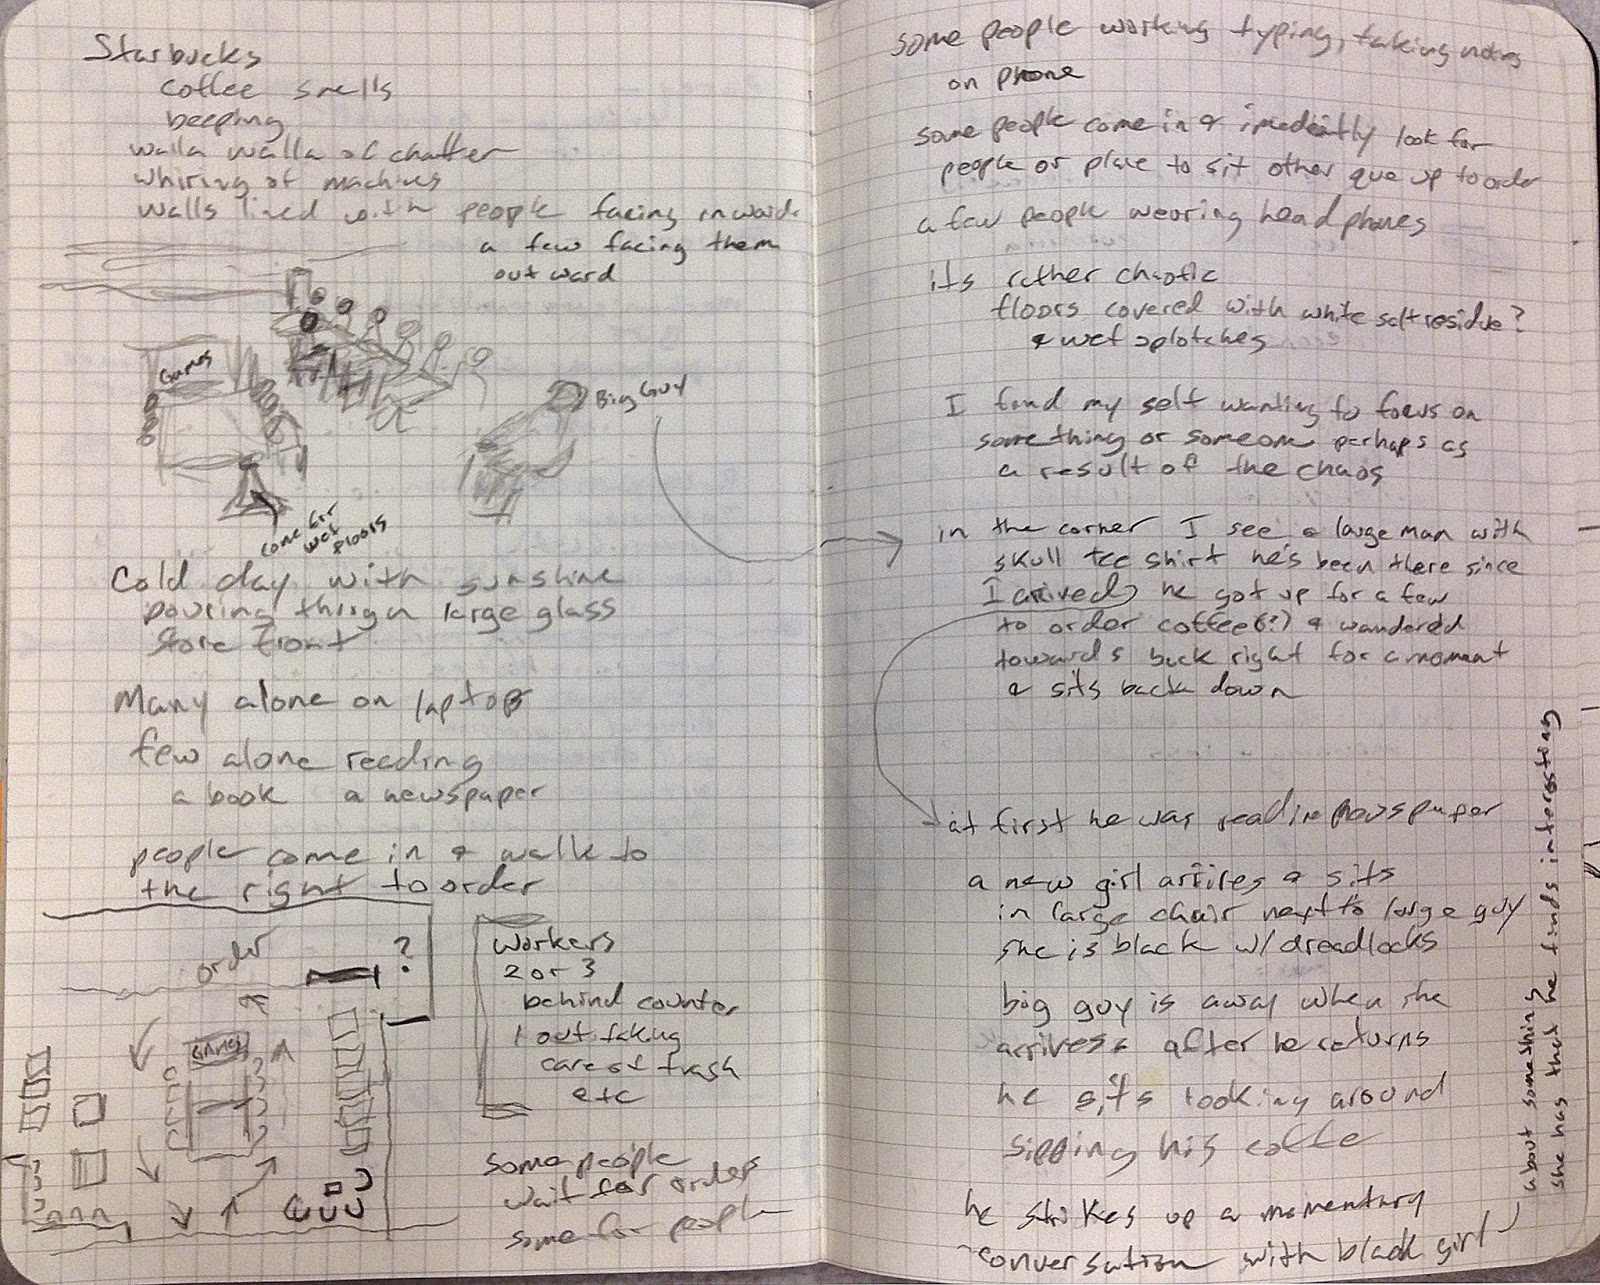 Starbucks
coffee smells
beeping
walla walla of chatter
whiring of machines
walls lined with people facing inward.
a few facing them
outward
Games
Big Guy
cone for
wet
floors
Cold day with sunshine
pouring through large glass
store front
Many alone on laptop
few alone reading
a book a newspaper
people come in & walk to
the right to order
order
?
GAMES
Workers
2 or 3
behind counter
1 out taking
care of trash
etc
some people
wait for orders
some for people
some people working typing, talking notes
on phone
some people come in & imediatly look for
people or place to sit other que up to order
a few people wearing head phones
its rather chaotic
floors covered with white salt residue?
& wet splotches
I find my self wanting to focus on
some thing or someone perhaps as
a result of the chaos
in the corner I see a large man with
skull tee shirt he's been there since
I arived) he got up for a few
to order coffee(?) & wandered
towards back right for a moment
& sits back down
at first he was readin newspaper
a new girl arrives & sits
in large chair next to large guy
she is black w/ dreadlocks
big guy is away when she
arrives & after he returns
he sits looking around
sipping his coffe
he strikes up a momentary
conversation with black girl
about something?
she has that he finds interesting